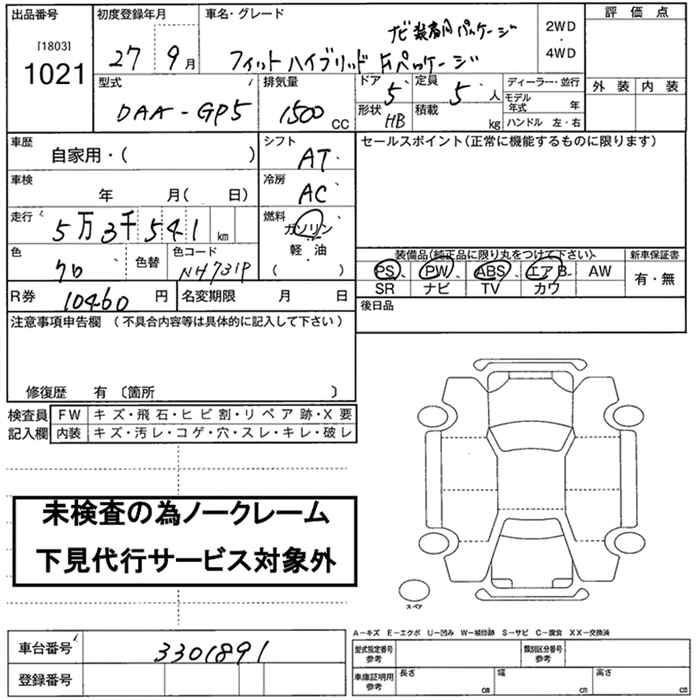 出品番号 初度登録年月 車名・グレード ナビ装着用パッケージ 2WD 評価点
[1803] 27 9月 フィットハイブリッド Fパッケージ ・ 4WD
1021 型式 排気量 ドア 5 定員 5人 ディーラー・並行 外装 内装
DAA-GP5 1500 CC 形状 HB 積載 kg モデル年式 年
ハンドル 左・右
車歴 シフト セールスポイント(正常に機能するものに限ります)
自家用・( ) AT
車検 冷房
年 月( 日) AC
走行 5万3千541km 燃料 ガソリン
色 クロ 色替 色コード NH731P 軽・油 装備品(純正品に限り丸をつけて下さい) 新車保証書
( ・ ) PS PW ABS エアB AW 有・無
R券 10460円 名変期限 月 日 SR ナビ TV カワ
注意事項申告欄(不具合内容等は具体的に記入して下さい) 後日品
修復歴 有〔箇所 〕
検査員 FW キズ・飛石・ヒビ割・リペア跡・X要
記入欄 内装 キズ・汚レ・コゲ・穴・スレ・キレ・破レ
未検査の為ノークレーム
下見代行サービス対象外
スペア
A-キズ E-エクボ U-凹み W-補修跡 S-サビ C-腐食 XX-交換済
車台番号 3301891 型式指定番号 参考 類別区分番号 参考
登録番号 車庫証明用 参考 長さ cm 幅 cm 高さ cm